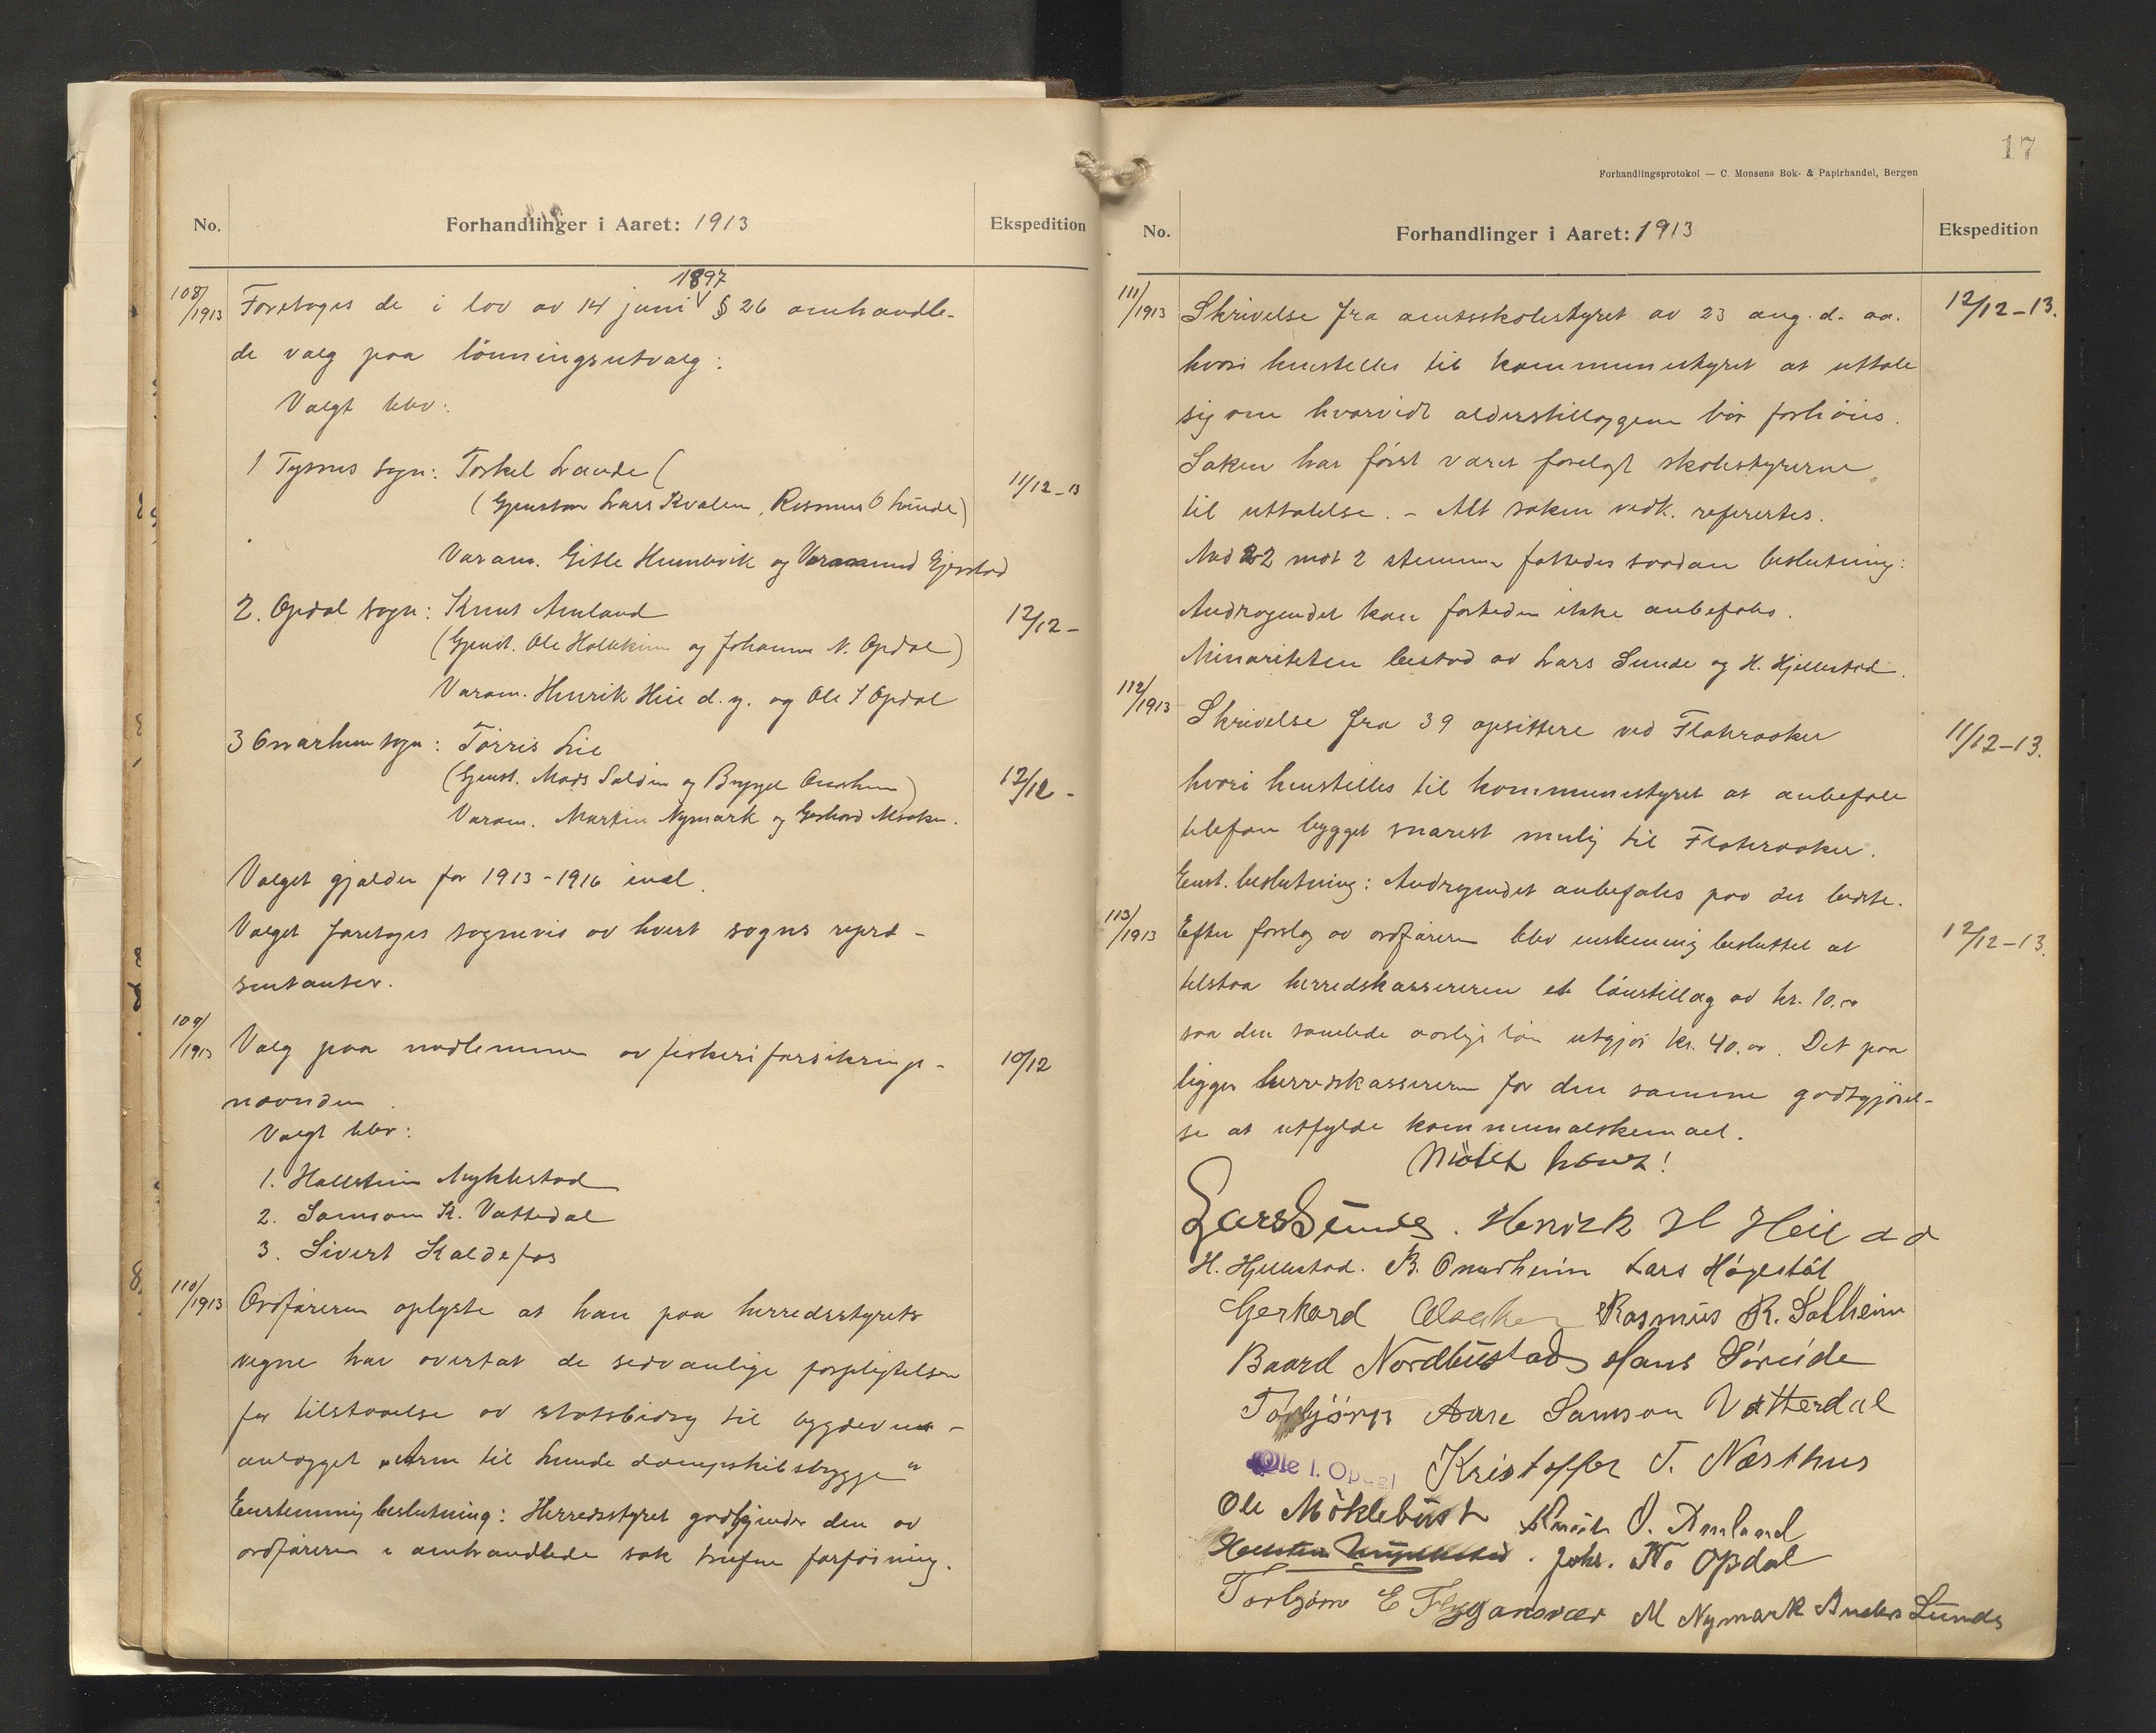 No.
Forhandlinger i Aaret: 1913
Ekspedition
108/1913
1897
Foretoges de i lov av 14 juni § 26 omhandle-
de valg paa lönningsutvalg:
Valgt blev:
1 Tysnes sogn: Torkel Lande (
(Gjenstan Lars Kvalem, Rasmus O Lunde)
11/12-13
Varam. Gitle Humlevik og
2. Opdal sogn: Knut Amland
12/12-
(Gjenst. Ole Hallekim og Johannes N. Opdal)
Varam. Henrik Heie d. y. og Ole I Opdal
3 Onarheim sogn: Törris Lie
(Gjenst. Mads Saldin og Onarheim)
12/12-
Varam. Martin Nymark og Gerhard Alsaker.
Valget gjælder for 1913-1916 incl.
Valget foretoges sognevis av hvert sogns repræ-
sentanter.
109/1913
Valg paa medlemmer av fiskeriforsikrings-
10/12
nævnden.
Valgt blev:
1. Hallstein Myklestad
2. Samson K. Vattedal
3. Sivert Kaldefos
110/1913
Ordföreren oplyste at han paa herredsstyrets
vegne har overtat de sedvanlige forpligtelser
for tilstaaelse av statsbidrag til bygdeveis-
anlægget „Arm til Lunde dampskibsbrygge“
Enstemmig beslutning: Herredsstyret godkjender den av
ordföreren i omhandlede sak trufne forföining.
17
Forhandlingsprotokol — C. Monsens Bok- & Papirhandel, Bergen
No.
Forhandlinger i Aaret: 1913
Ekspedition
111/1913
Skrivelse fra amtsskolestyret av 23 aug. d. aa.
12/12-13.
hvori henstilles til kommunestyret at uttale
sig om hvorvidt alderstillæggene bör forhöies.
Saken har först været forelagt skolestyrerne
til uttalelse. - Alt saken vedk. refereertes.
Med 22 mot 2 stemmer fattedes saadan beslutning:
Andragendet kan fortiden ikke anbefales.
Minoriteten bestod av Lars Lunde og H. Hjellestad.
112/1913
Skrivelse fra 39 opsittere ved Flateraaker
11/12-13.
hvori henstilles til kommunestyret at anbefale
telefon bygget snarest mulig til Flateraaker.
Enst. beslutning: Andragendet anbefales paa det bedste.
113/1913
Efter forslag av ordföreren blev enstemmig besluttet at
12/12-13.
tilstaa herredskassereren et lönstillæg av kr. 10.00
saa den samlede aarlige lön utgjör kr. 40.00. Det paa
ligger herredskassereren for den samme godtgjörel-
se at utfylde kommunalskemaet.
Mötet hævet!
Lars Lunde. Henrik H Heie d d
H. Hjellestad. B. Onarheim Lars Högestöl
Gerhard Alsaker Rasmus R. Solheim
Baard Nordbustad Hans Söreide
Torbjörn Aare Samson Vatterdal
Ole I. Opdal Kristoffer T. Næsthus
Ole Möklebust Knut O. Amland
Hallstein Myklestad. Johs. N. Opdal
Torbjörn E Flygansvær M Nymark Anders Lunde